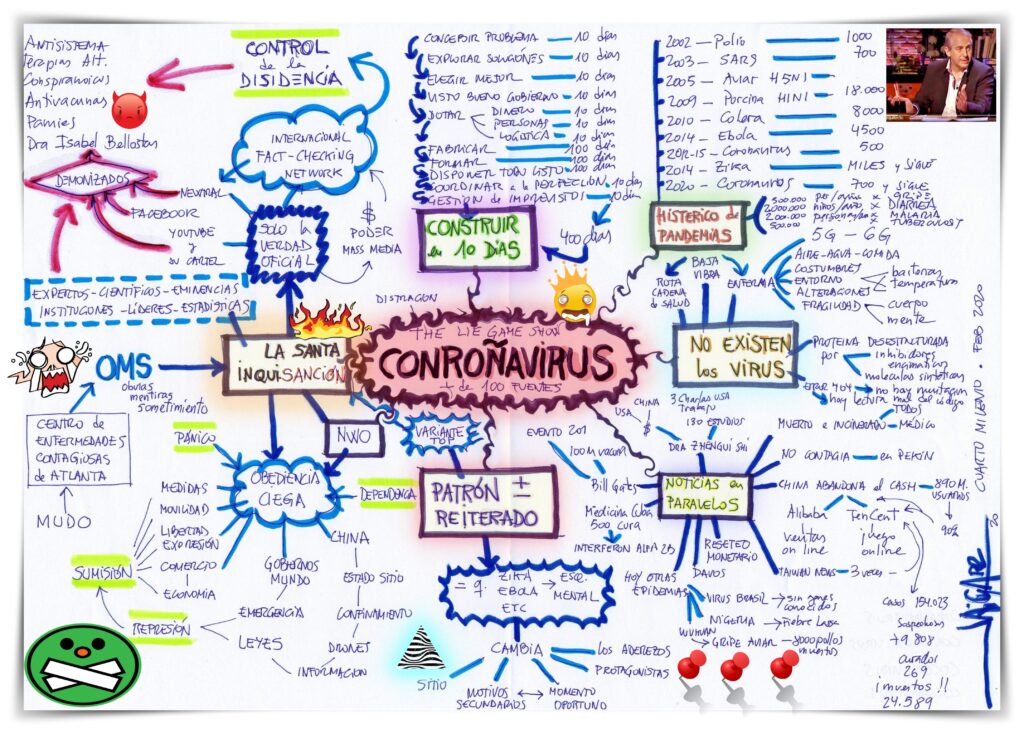 ANTISISTEMA
Terapias Alt.
Conspiranoicos
Antivacunas
Pamies
Dra Isabel Bellostas
DEMONIZADOS
CONTROL
de la
DISIDENCIA
INTERNACIONAL
FACT-CHECKING
NETWORK
NEWTRAL
FACEBOOK
YOUTUBE y
SU CARTEL
SOLO la
VERDAD
OFICIAL
$
PODER
MASS MEDIA
EXPERTOS-CIENTÍFICOS-EMINENCIAS
INSTITUCIONES-LÍDERES-ESTADÍSTICAS
CONCEBIR PROBLEMA 10 días
EXPLORAR SOLUCIONES 10 días
ELEGIR MEJOR 10 días
VISTO BUENO GOBIERNO 10 días
DOTAR DINERO 10 días
PERSONAS 10 días
LOGÍSTICA 10 días
FABRICAR 100 días
FORMAR 100 días
DISPONER TODO LISTO 100 días
COORDINAR a la PERFECCIÓN 10 días
GESTIÓN de IMPREVISTOS 10 días
400 días
CONSTRUIR
en 10 DÍAS
2002 - Polio 1000
2003 - SARS 700
2005 - Aviar H5N1
2009 - Porcina H1N1 18.000
2010 - Colera 8000
2014 - Ebola 4500
2012-15 - Coronavirus 500
2014 - Zika MILES y sigue
2020 - Coronavirus 700 y sigue
HISTERICO de
PANDEMIAS
500.000 por/año x GRIPE
2000.000 niños/año x DIARREA
200.000 personas/año x MALARIA
500.000 TUBERCULOSIS
5G - 6G
BAJA
VIBRA
ROTA
CADENA
de SALUD
ENFERMA
AIRE-AGUA-COMIDA
COSTUMBRES
ENTORNO
ALTERACIONES
FRAGILIDAD
bacterias
temperatura
cuerpo
mente
NO EXISTEN
los VIRUS
PROTEINA DESESTRUCTURADA
por inhibidores
enzimáticos
moleculas sintéticas
ERROR 404 no hay mutación
hay lectura mal del código
CUARTO MILENIO. FEB 2020
DISTRACION
THE LIE GAME SHOW
CONROÑAVIRUS
+ de 100 FUENTES
LA SANTA
INQUISANCIÓN
OMS
obvias
mentiras
sometimiento
CENTRO de
ENFERMEDADES
CONTAGIOSAS
de ATLANTA
MUDO
NWO
VARIANTE
TOP
PÁNICO
OBEDIENCIA
CIEGA
DEPENDENCIA
MEDIDAS
MOVILIDAD
LIBERTAD
EXPRESIÓN
COMERCIO
ECONOMIA
SUMISIÓN
REPRESIÓN
GOBIERNOS
MUNDO
EMERGENCIA
LEYES
CHINA
ESTADO SITIO
CONFINAMIENTO
DRONES
INFORMACION
PATRÓN ±
REITERADO
= q. ZIKA
EBOLA
ETC
ESQ.
MENTAL
CAMBIA
SITIO
MOTIVOS
SECUNDARIOS
MOMENTO
OPORTUNO
los ADEREZOS
PROTAGONISTAS
EVENTO 201
100 M vacuna
Bill Gates
Medicina Cuba
500 cura
INTERFERON ALFA 2B
CHINA
USA
$
3 Charlas USA
Trabajo
130 ESTUDIOS
DRA ZHENGLI SHI
NOTICIAS en
PARALELOS
MUERTO e INCINERADO
TODOS
MÉDICO
NO CONTAGIA en PEKIN
CHINA ABANDONA el CASH
890 M.
USUARIOS
90%
Alibaba
ventas
on line
TenCent
juego
online
TAIWAN NEWS 3 veces
RESETEO
MONETARIO
DAVOS
HOY OTRAS
EPIDEMIAS
VIRUS BRASIL sin genes
conocidos
NIGERIA Fiebre Lassa
WUHAN
GRIPE AVIAR
muertos
Casos 154.023
Sospechosos
79808
curados
269
¡muertos!!
24.589